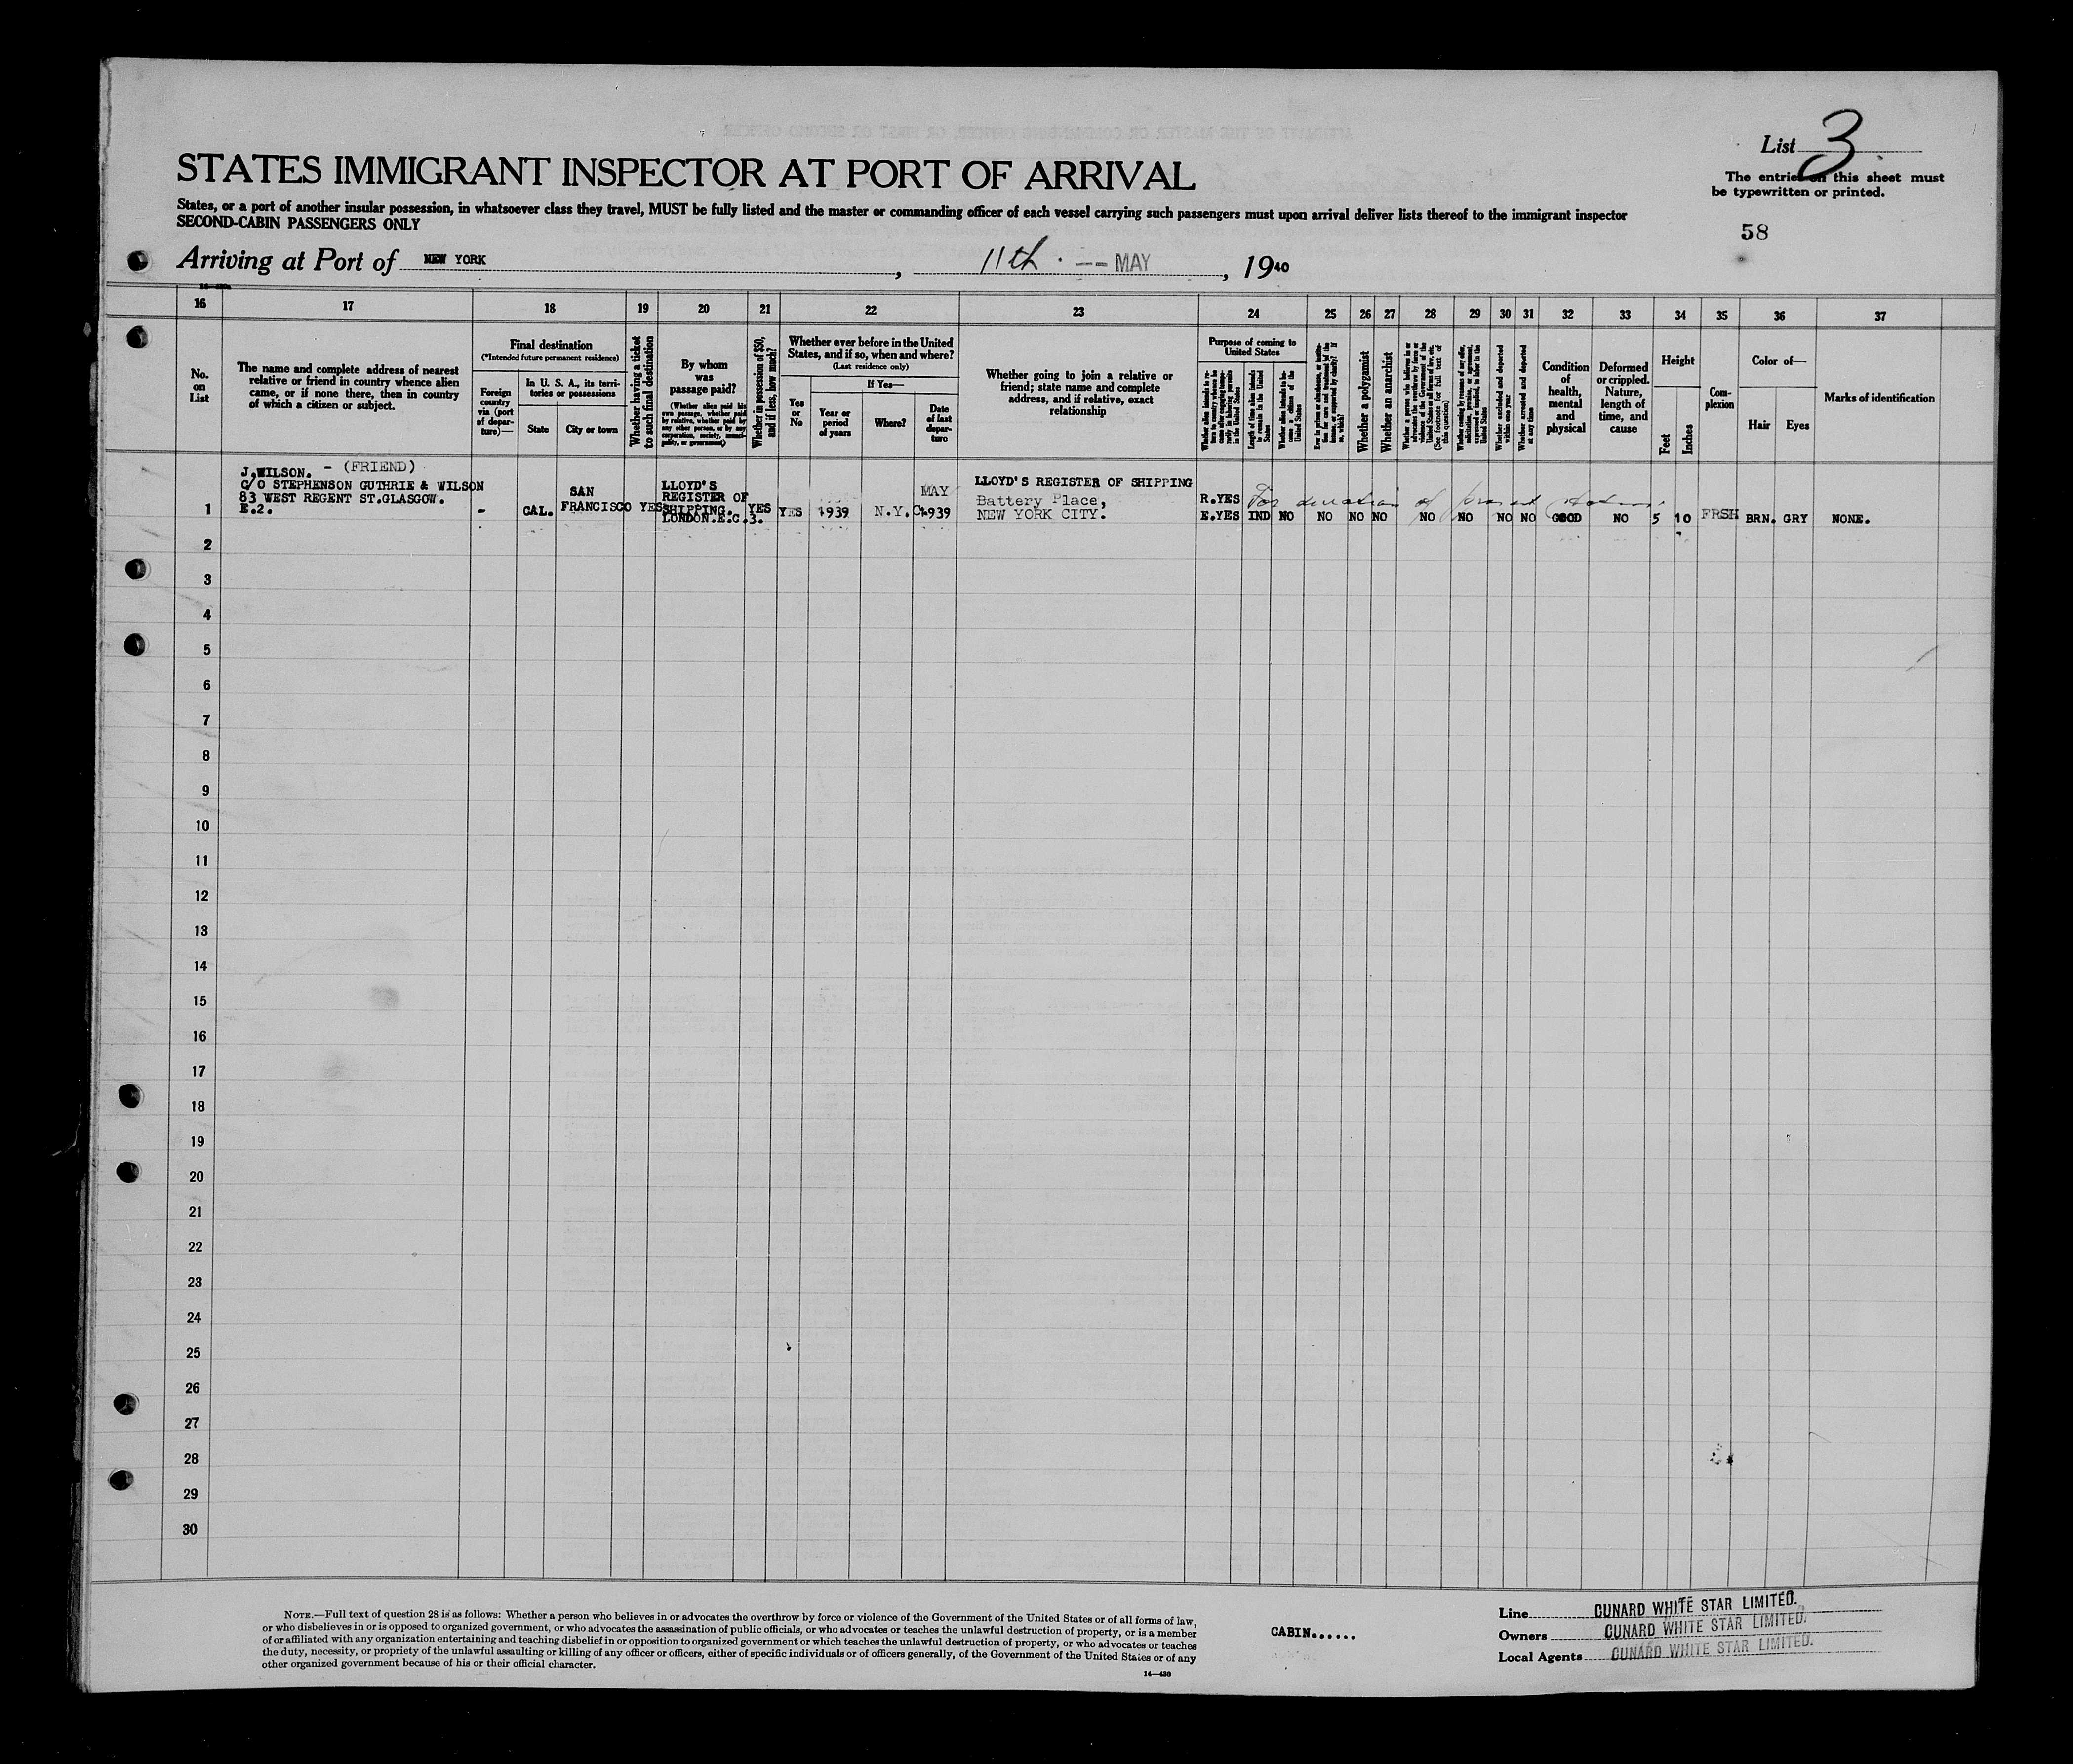 List 3
The entries on this sheet must
be typewritten or printed.
58
STATES IMMIGRANT INSPECTOR AT PORT OF ARRIVAL
States, or a port of another insular possession, in whatsoever class they travel, MUST be fully listed and the master or commanding officer of each vessel carrying such passengers must upon arrival deliver lists thereof to the immigrant inspector
SECOND-CABIN PASSENGERS ONLY
Arriving at Port of NEW YORK, 11th -- MAY, 1940
16 17 18 19 20 21 22 23 24 25 26 27 28 29 30 31 32 33 34 35 36 37
No.
on
List
The name and complete address of nearest
relative or friend in country whence alien
came, or if none there, then in country
of which a citizen or subject.
Final destination
(*Intended future permanent residence)
Foreign
country
via (port
of depar-
ture)—
In U. S. A., its terri-
tories or possessions
State
City or town
Whether having a ticket
to such final destination
By whom
was
passage paid?
(Whether alien paid his
own passage, whether paid
by relative, whether paid by
any other person, or by any
corporation, society, munici-
pality, or government)
Whether in possession of $50,
and if less, how much?
Whether ever before in the United
States, and if so, when and where?
(Last residence only)
Yes
or
No
If Yes—
Year or
period
of years
Where?
Date
of last
depar-
ture
Whether going to join a relative or
friend; state name and complete
address, and if relative, exact
relationship
Purpose of coming to
United States
Length of time alien intends
to remain in the United
States
Whether alien intends to be-
come a citizen of the
United States
Whether a polygamist
Whether an anarchist
(See footnote for full text of
this question)
Whether excluded and deported
within one year
Whether arrested and deported
at any time
Condition
of
health,
mental
and
physical
Deformed
or crippled.
Nature,
length of
time, and
cause
Height
Feet
Inches
Com-
plexion
Color of—
Hair
Eyes
Marks of identification
J.WILSON. - (FRIEND)
C/O STEPHENSON GUTHRIE & WILSON
83 WEST REGENT ST.GLASGOW.
E.2.
1
-
CAL.
SAN
FRANCISCO
YES
LLOYD'S
REGISTER OF
SHIPPING.
LONDON.E.C.3.
YES
YES
1939
N.Y.C.
MAY
1939
LLOYD'S REGISTER OF SHIPPING
Battery Place,
NEW YORK CITY.
R.YES For duration of present
E.YES IND NO NO NO NO NO NO NO NO GOOD NO 5 10 FRSH BRN. GRY NONE.
2
3
4
5
6
7
8
9
10
11
12
13
14
15
16
17
18
19
20
21
22
23
24
25
26
27
28
29
30
NOTE.—Full text of question 28 is as follows: Whether a person who believes in or advocates the overthrow by force or violence of the Government of the United States or of all forms of law,
or who disbelieves in or is opposed to organized government, or who advocates the assassination of public officials, or who advocates or teaches the unlawful destruction of property, or is a member
of or affiliated with any organization entertaining and teaching disbelief in or opposition to organized government or which teaches the unlawful destruction of property, or who advocates or teaches
the duty, necessity, or propriety of the unlawful assaulting or killing of any officer or officers, either of specific individuals or of officers generally, of the Government of the United States or of any
other organized government because of his or their official character.
14—430
CABIN......
Line CUNARD WHITE STAR LIMITED.
Owners CUNARD WHITE STAR LIMITED.
Local Agents CUNARD WHITE STAR LIMITED.